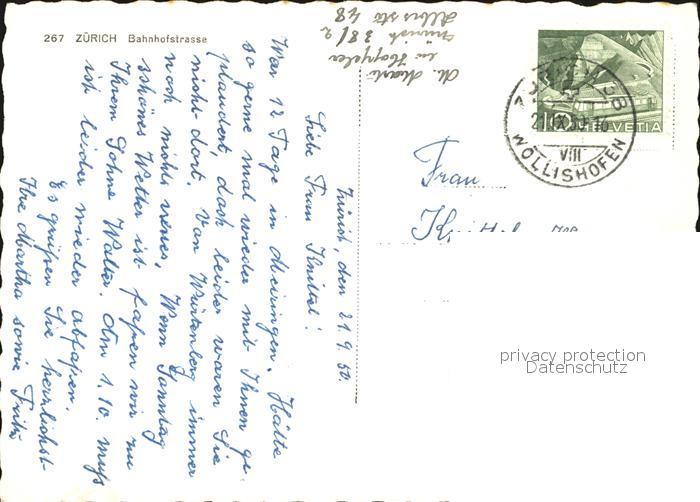 267 ZÜRICH Bahnhofstrasse
Zürich, den 21.9.50.
Liebe Frau Knittel!
War 12 Tage in Meiringen. Hätte
so gerne mal wieder mit Ihnen ge-
plaudert, doch leider waren Sie
nicht dort. Von Würtenberg immer
noch nichts neues. Wenn Sonntag
schönes Wetter ist fahren wir zu
Ihrem Sohne Walter. Am 1.10. muss
ich leider wieder abfahren.
Es grüssen Sie herzlichst
Ihre Martha sowie Fritz
Zürich 38/2
Albisstr 48
10
HELVETIA
21.IX.50-16
VIII
WOLLISHOFEN
Frau
privacy protection
Datenschutz